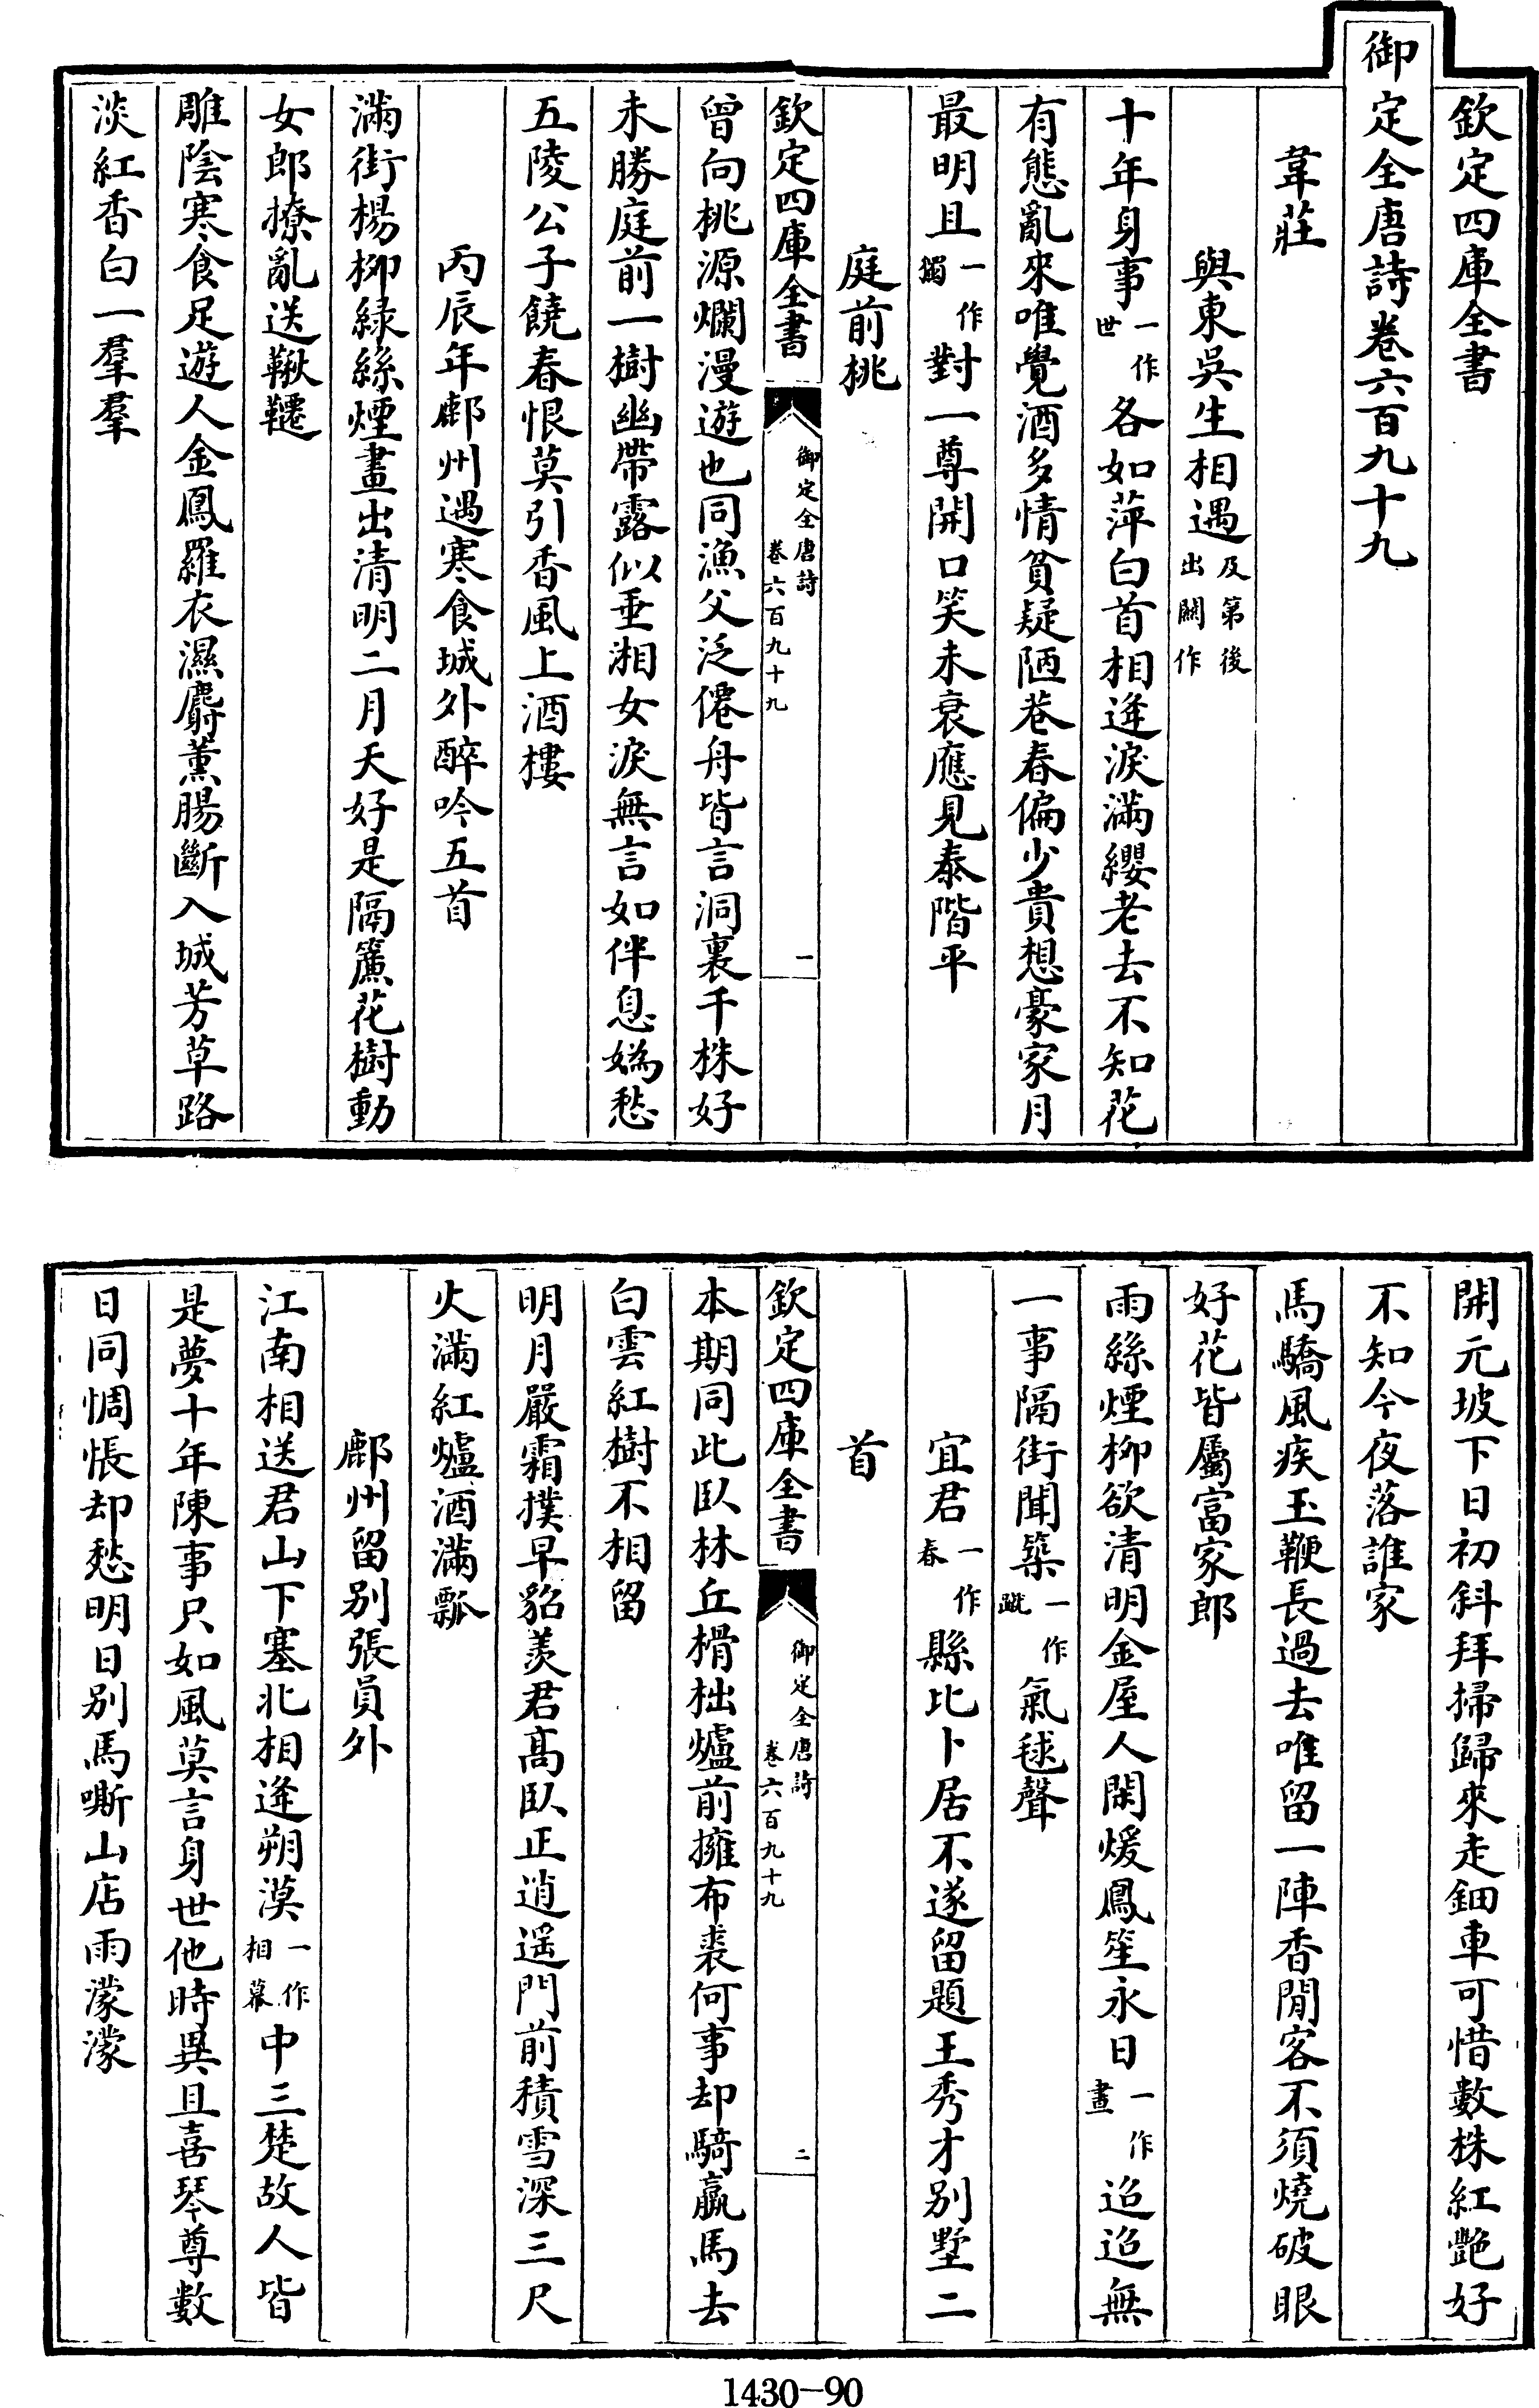 欽定四庫全書
御定全唐詩卷六百九十九
韋莊
與東吳生相遇及第後出關作
十年身事一作世各如萍白首相逢淚滿纓老去不知花
有態亂來唯覺酒多情貧疑陋巷春偏少貴想豪家月
最明且一作獨對一尊開口笑未衰應見泰階平
庭前桃
欽定四庫全書
御定全唐詩
卷六百九十九
一
曾向桃源爛漫遊也同漁父泛僊舟皆言洞裏千株好
未勝庭前一樹幽帶露似垂湘女淚無言如伴息媯愁
五陵公子饒春恨莫引香風上酒樓
丙辰年鄜州遇寒食城外醉吟五首
滿街楊柳綠絲煙畫出清明二月天好是隔簾花樹動
女郎撩亂送鞦韆
雕陰寒食足遊人金鳳羅衣濕麝薰腸斷入城芳草路
淡紅香白一羣羣
開元坡下日初斜拜掃歸來走鈿車可惜數株紅艶好
不知今夜落誰家
馬驕風疾玉鞭長過去唯留一陣香閒客不須燒破眼
好花皆屬富家郎
雨絲煙柳欲清明金屋人閑煖鳳笙永日一作晝迢迢無
一事隔街聞築一作蹴氣毬聲
宜君一作春縣比卜居不遂留題王秀才別墅二
首
欽定四庫全書
御定全唐詩
卷六百九十九
二
本期同此臥林丘榾柮爐前擁布裘何事却騎羸馬去
白雲紅樹不相留
明月嚴霜撲早貂羨君高臥正逍遥門前積雪深三尺
火滿紅爐酒滿瓢
鄜州留别張員外
江南相送君山下塞北相逢朔漠一作相幕中三楚故人皆
是夢十年陳事只如風莫言身世他時異且喜琴尊數
日同惆悵却愁明日别馬嘶山店雨濛濛
1430-90